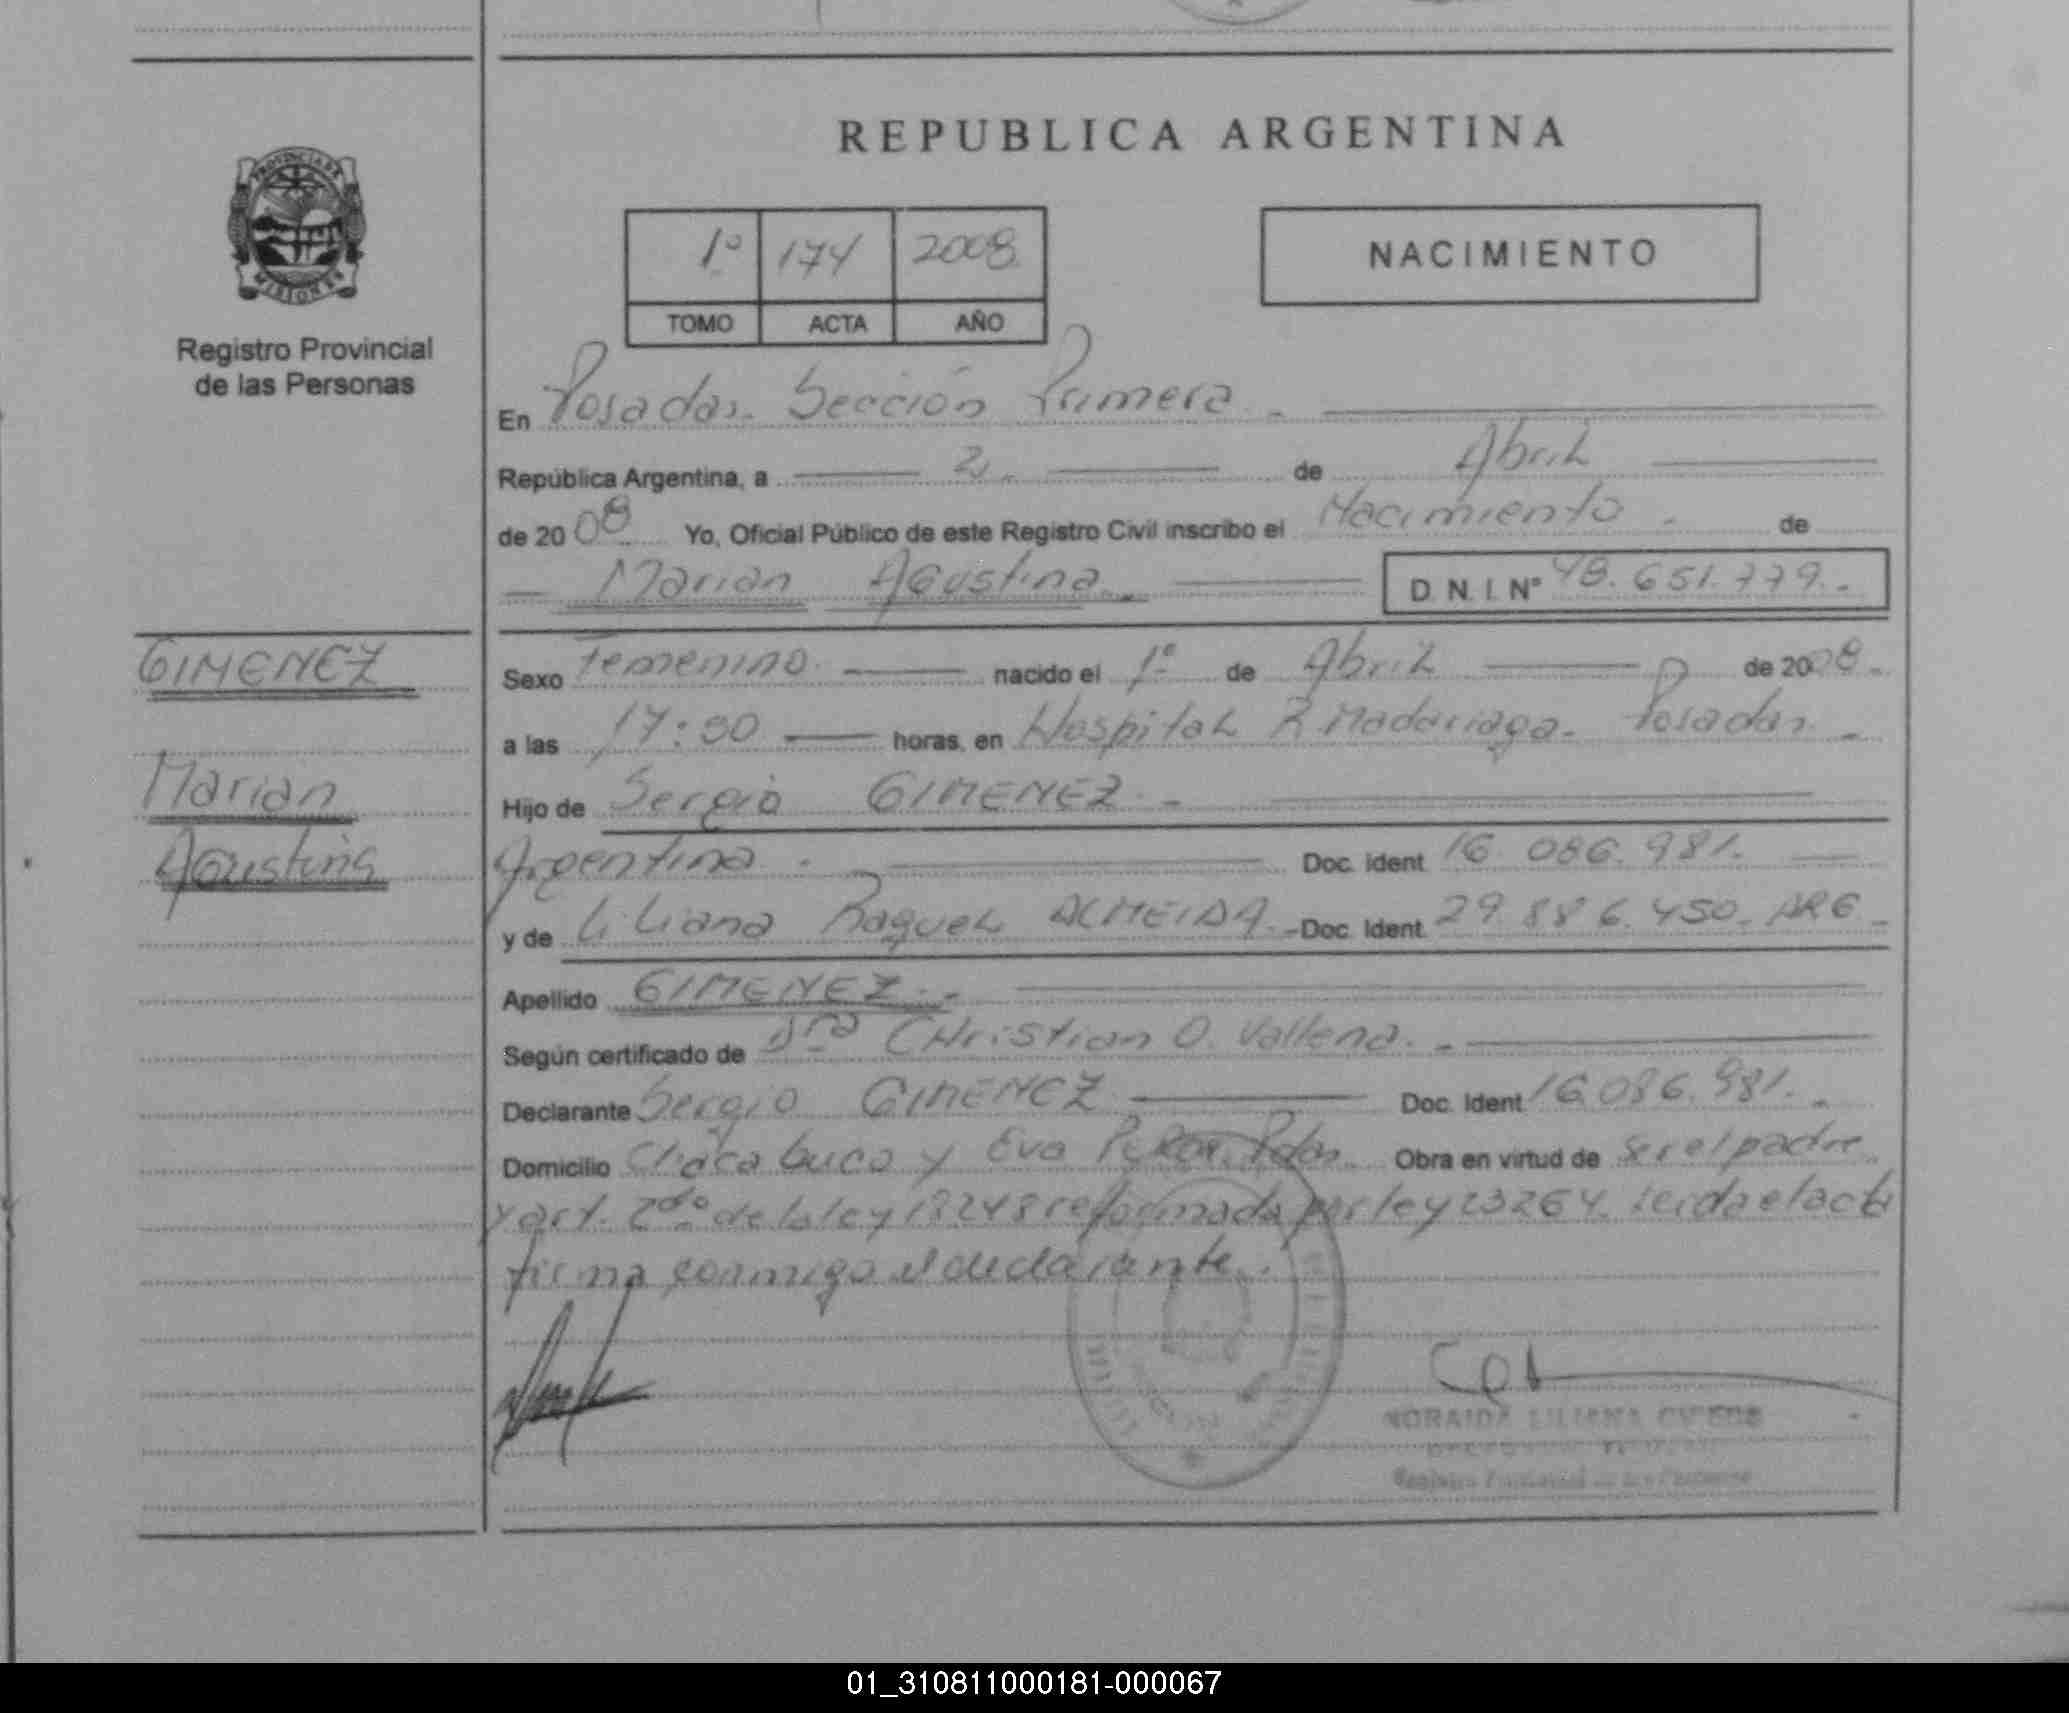 REPUBLICA ARGENTINA
PROVINCIA DE
MISIONES
Registro Provincial
de las Personas
1º 174 2008
TOMO ACTA AÑO
NACIMIENTO
En Posadas. Sección Primera.-
República Argentina, a 2. de Abril
de 2008 Yo, Oficial Público de este Registro Civil inscribo el Nacimiento. de
Marian Agustina.- D. N. I. Nº 48.651.779.-
GIMENEZ
Marian
Agustina
Sexo Femenino. nacido el 1º de Abril de 2008.-
a las 17:30 horas, en Hospital R Madariaga. Posadas.-
Hijo de Sergio GIMENEZ.-
Argentina. Doc. Ident 16.086.981.
y de Liliana Raquel ALMEIDA.- Doc. Ident. 29.886.450. ARG.-
Apellido GIMENEZ.-
Según certificado de Christian O.
Declarante Sergio GIMENEZ Doc. Ident 16.086.981.-
Domicilio Chacabuco y Eva Perón. Pdas. Obra en virtud de ser el padre
y art. 2do de la ley 18248 reformada por ley 23264. leida el acta
firma conmigo el declarante.
NORAIDA LILIANA
Registro Provincial de las Personas
01_310811000181-000067